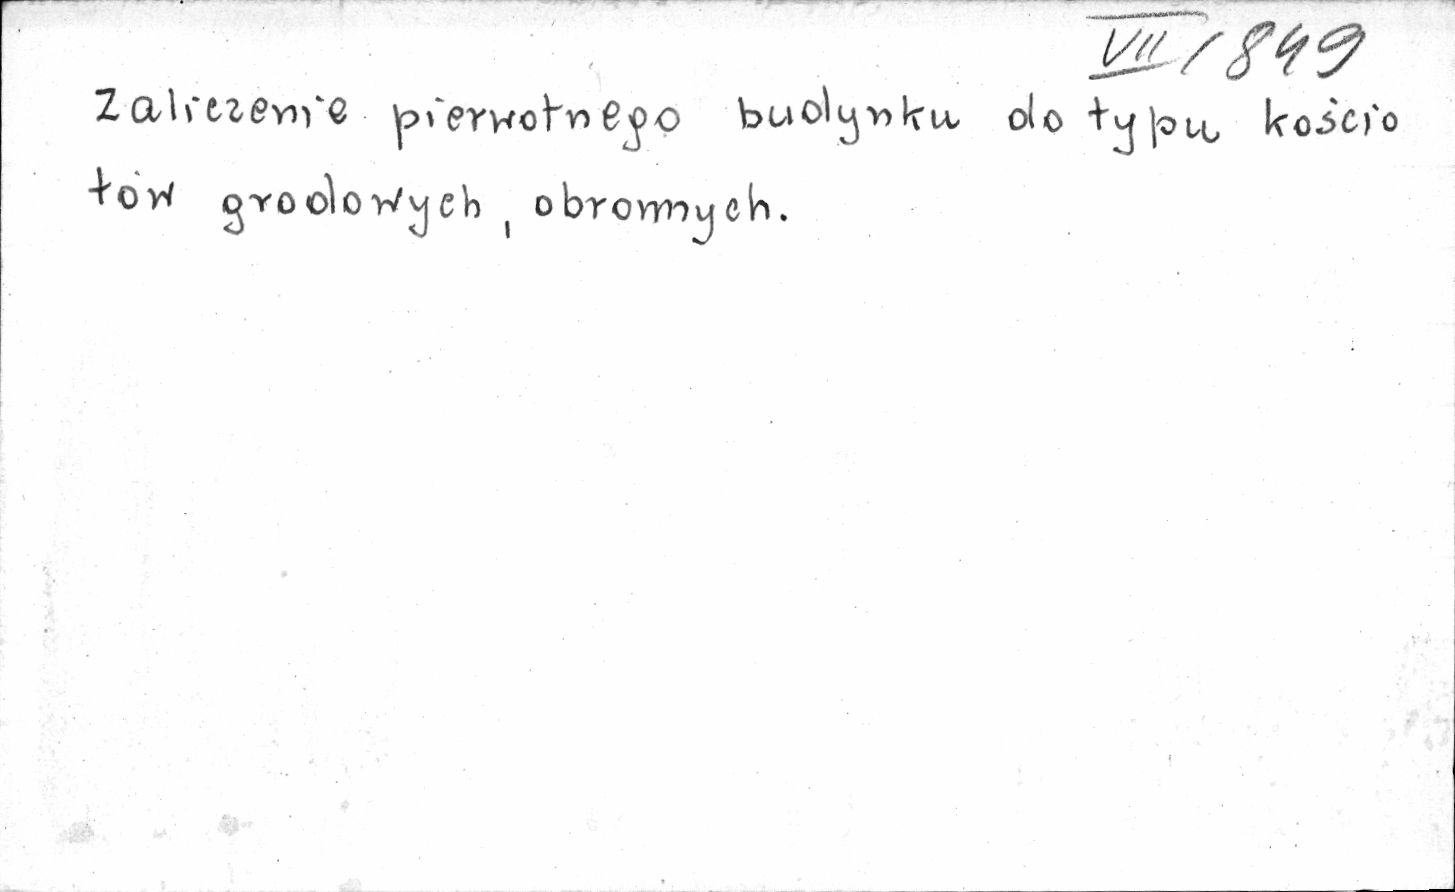 VII/849
Zaliczenie pierwotnego budynku do typu kościo
łów grodowych, obronnych.